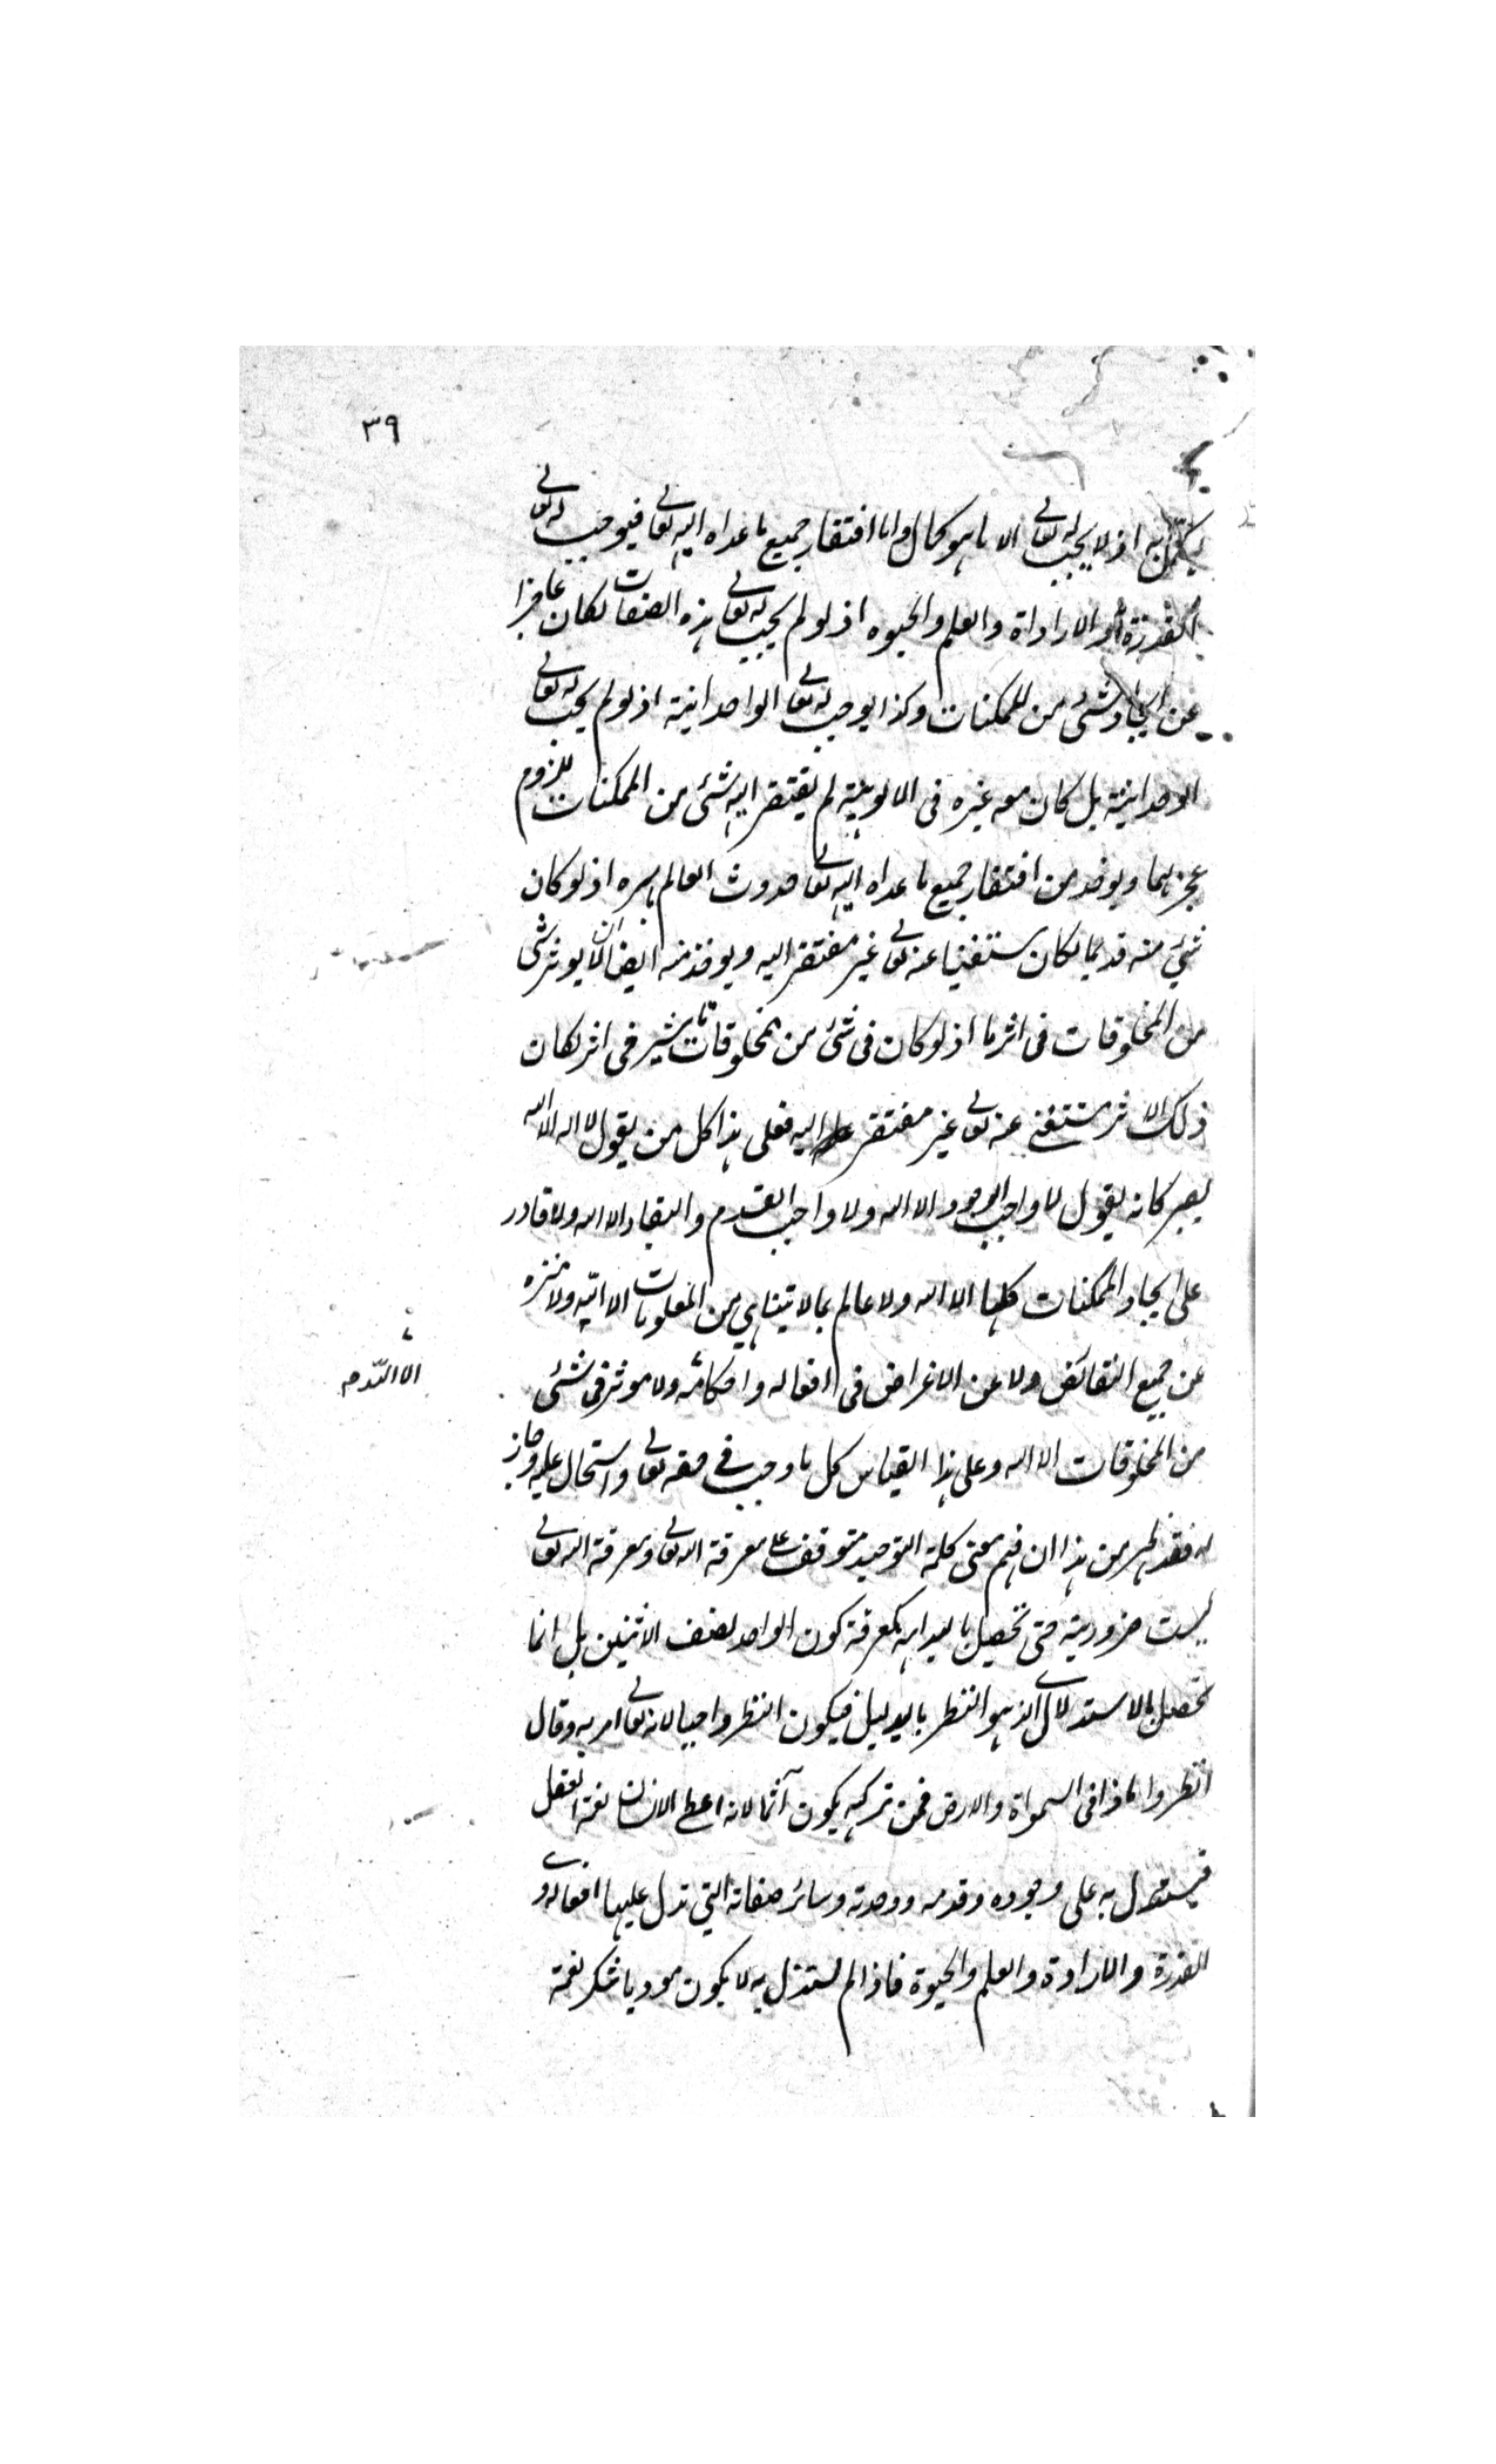 ٣٩
يكمل به اذ لا يجب له تعالى الا ما هو كمال واما افتقار جميع ما عداه اليه تعالى فيوجب له تعالى
القدرة والاراداة والعلم والحيوه اذ لو لم يجب له تعالى هذه الصفات لكان عاجزا
عن ايجاد شئ من الممكنات وكذا يوجب له تعالى الواحدانية اذ لو لم يجب له تعالى
الوحدانية بل كان معه غيره فى الالوهية لم يفتقر اليه شئ من الممكنات للزوم
عجزهما ويوخذ من افتقار جميع ما عداه اليه تعالى حدوث العالم باسره اذ لو كان
شئ منه قديما لكان مستغنيا عنه تعالى غير مفتقر اليه ويوخذ منه ايضا ان لا يوثر شئ
من المخلوقات فى اثر ما اذ لو كان فى شئ من المخلوقات تاثير فى اثر لكان
ذلك الاثر مستغنى عنه تعالى غير مفتقر اليه فعلى هذا كل من يقول لا اله الا الله
يصير كانه يقول لا واجب الوجود الا الله ولا واجب القدم والبقاء الا الله ولا قادر
على ايجاد الممكنات كلها الا الله ولا عالم بما لا يتناهى من المعلومات الا الله ولا منزه
عن جميع النقائض ولا عن الاغراض فى افعاله واحكامه ولا موثر فى شئ
الا الله صح
من المخلوقات الا الله وعلى هذا القياس كل ما وجب فى حقه تعالى واستحال عليه وجاز
له فقد ظهر من هذا ان فهم معنى كلمة التوحيد متوقف على معرفة الله تعالى ومعرفة الله تعالى
ليست ضرورية حتى تحصل بالبداهه كمعرفة كون الواحد نصف الاثنين بل انما
تحصل بالاستدلال الذى هو النظر بالدليل فيكون النظر واجبا لانه تعالى امر به وقال
انظروا ماذا فى السمواة والارض فمن تركه يكون آثما لانه اعطى الانسان نعمة العقل
فيستدل به على وجوده وقدمه ووحدته وسائر صفاته التى تدل عليها افعاله
القدرة والارادة والعلم والحيوة فاذا لم يستدل به لا يكون موديا شكر نعمة